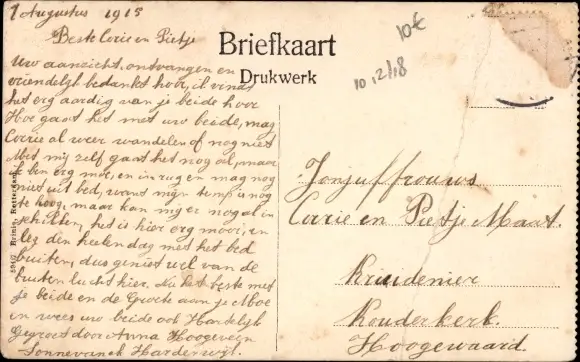 1 Augustus 1915
Beste Corrie en Pietje
Uw aanzicht ontvangen en
vriendelijk bedankt hoor, ik vind
het erg aardig van je beide hoor
Hoe gaat het met uw beide, mag
Corrie al weer wandelen of nog niet
Met mij zelf gaat het nog al, maar
ik ben erg moe, en in rug en mag nog
niet uit bed, want mijn temp is nog
te hoog, maar kan mij er nog al in
schikken, het is hier erg mooi, en
leg den heelen dag met het bed
buiten, dus geniet wel van de
buiten lucht hier. Nu het beste met
je beide en de Groete aan je Moe
en wees uw beide ook Hartelijk
Gegroet door Anna Hoogeveen
Sonnevanck Harderwijk.
Briefkaart
Drukwerk
10€
10,12/18
Jonjuffrouws
Corrie en Pietje Maat.
Kruidenier
Kouderkerk.
Hoogewaard.